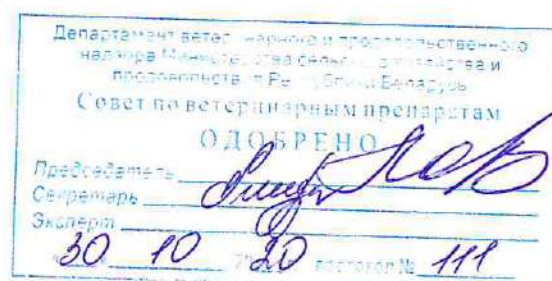 Департамент ветеринарного и продовольственного
надзора Министерства сельского хозяйства и
продовольствия Республики Беларусь
Совет по ветеринарным препаратам
ОДОБРЕНО
Председатель
Секретарь
Эксперт
30 10 20 протокол № 111